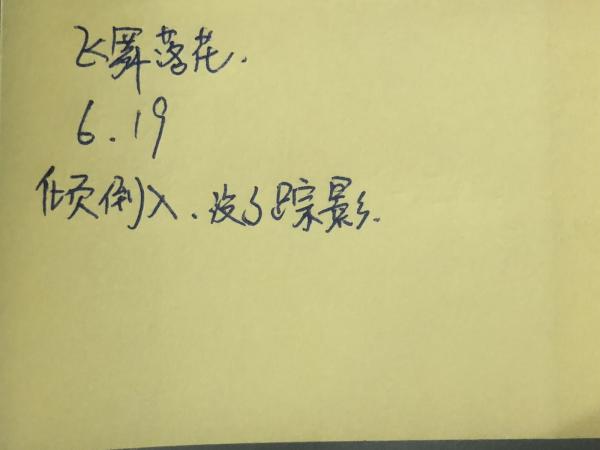 飞舞落花.
6.19
倾倒入、没了踪影.